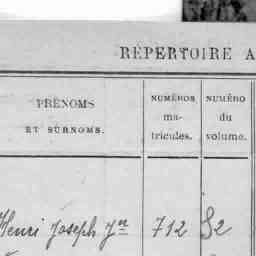 RÉPERTOIRE A
PRÉNOMS
ET SURNOMS.
NUMÉROS
ma-
tricules.
NUMÉRO
du
volume.
Henri Joseph Jn 712 S2